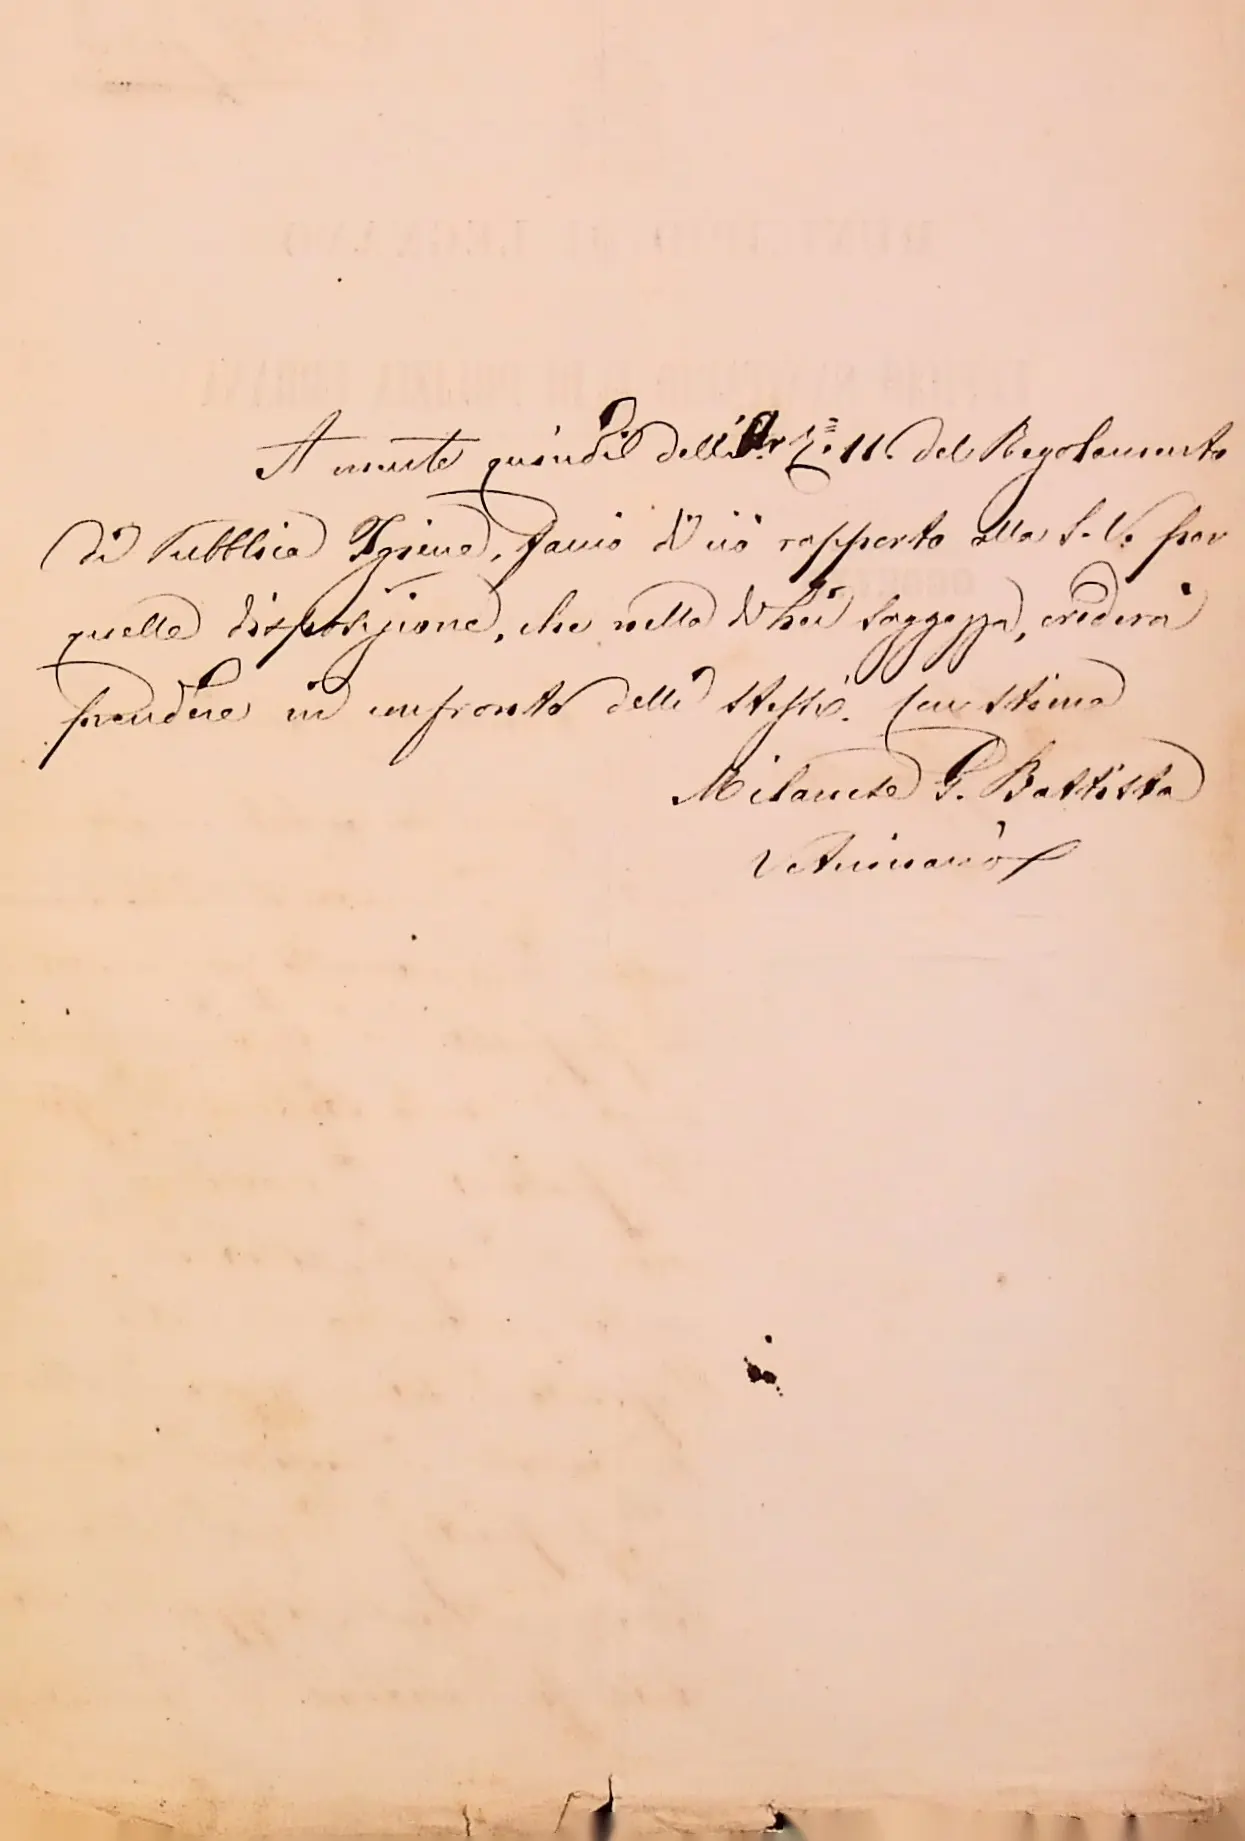 A mente quindi dell'Ar. N.º 11. del Regolamento
di Pubblica Igiene, faccio di ciò rapporto alla S. V. per
quelle disposizione, che nella di Lei saggezza, crederà
prendere in confronto delli stessi. Con stima
Milanese G. Battista
Veterinario